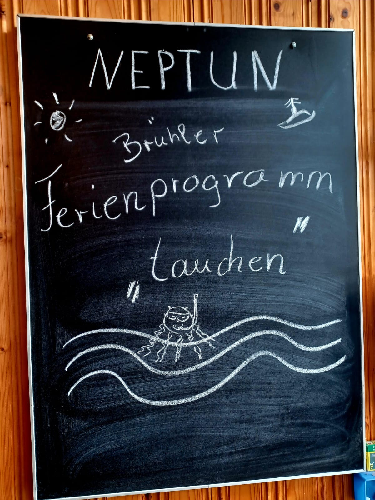 NEPTUN
Brühler
Ferienprogramm
„tauchen"